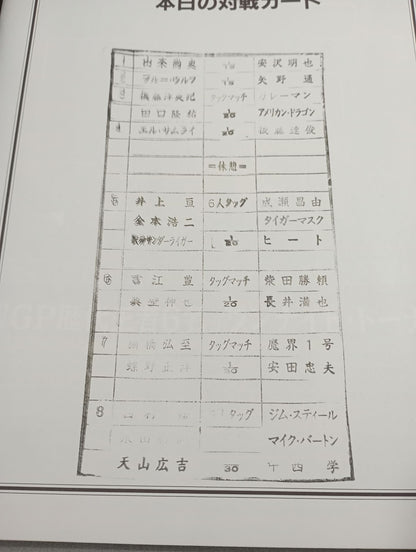 本日の対戦カード
1 安沢明也
2 矢野通
3 タッグマッチ
田口隆祐 1/20 アメリカン・ドラゴン
4 エル・サムライ 1/20 後藤達俊
=休憩=
5 井上亘 6人タッグ 成瀬昌由
金本浩二 タイガーマスク
獣神サンダーライガー 1/30 ヒート
6 吉江豊 タッグマッチ 柴田勝頼
1/30 長井満也
7 棚橋弘至 タッグマッチ 魔界1号
蝶野正洋 1/30 安田忠夫
8 西村 タッグ ジム・スティール
永田 マイク・バートン
天山広吉 1/30 中西学